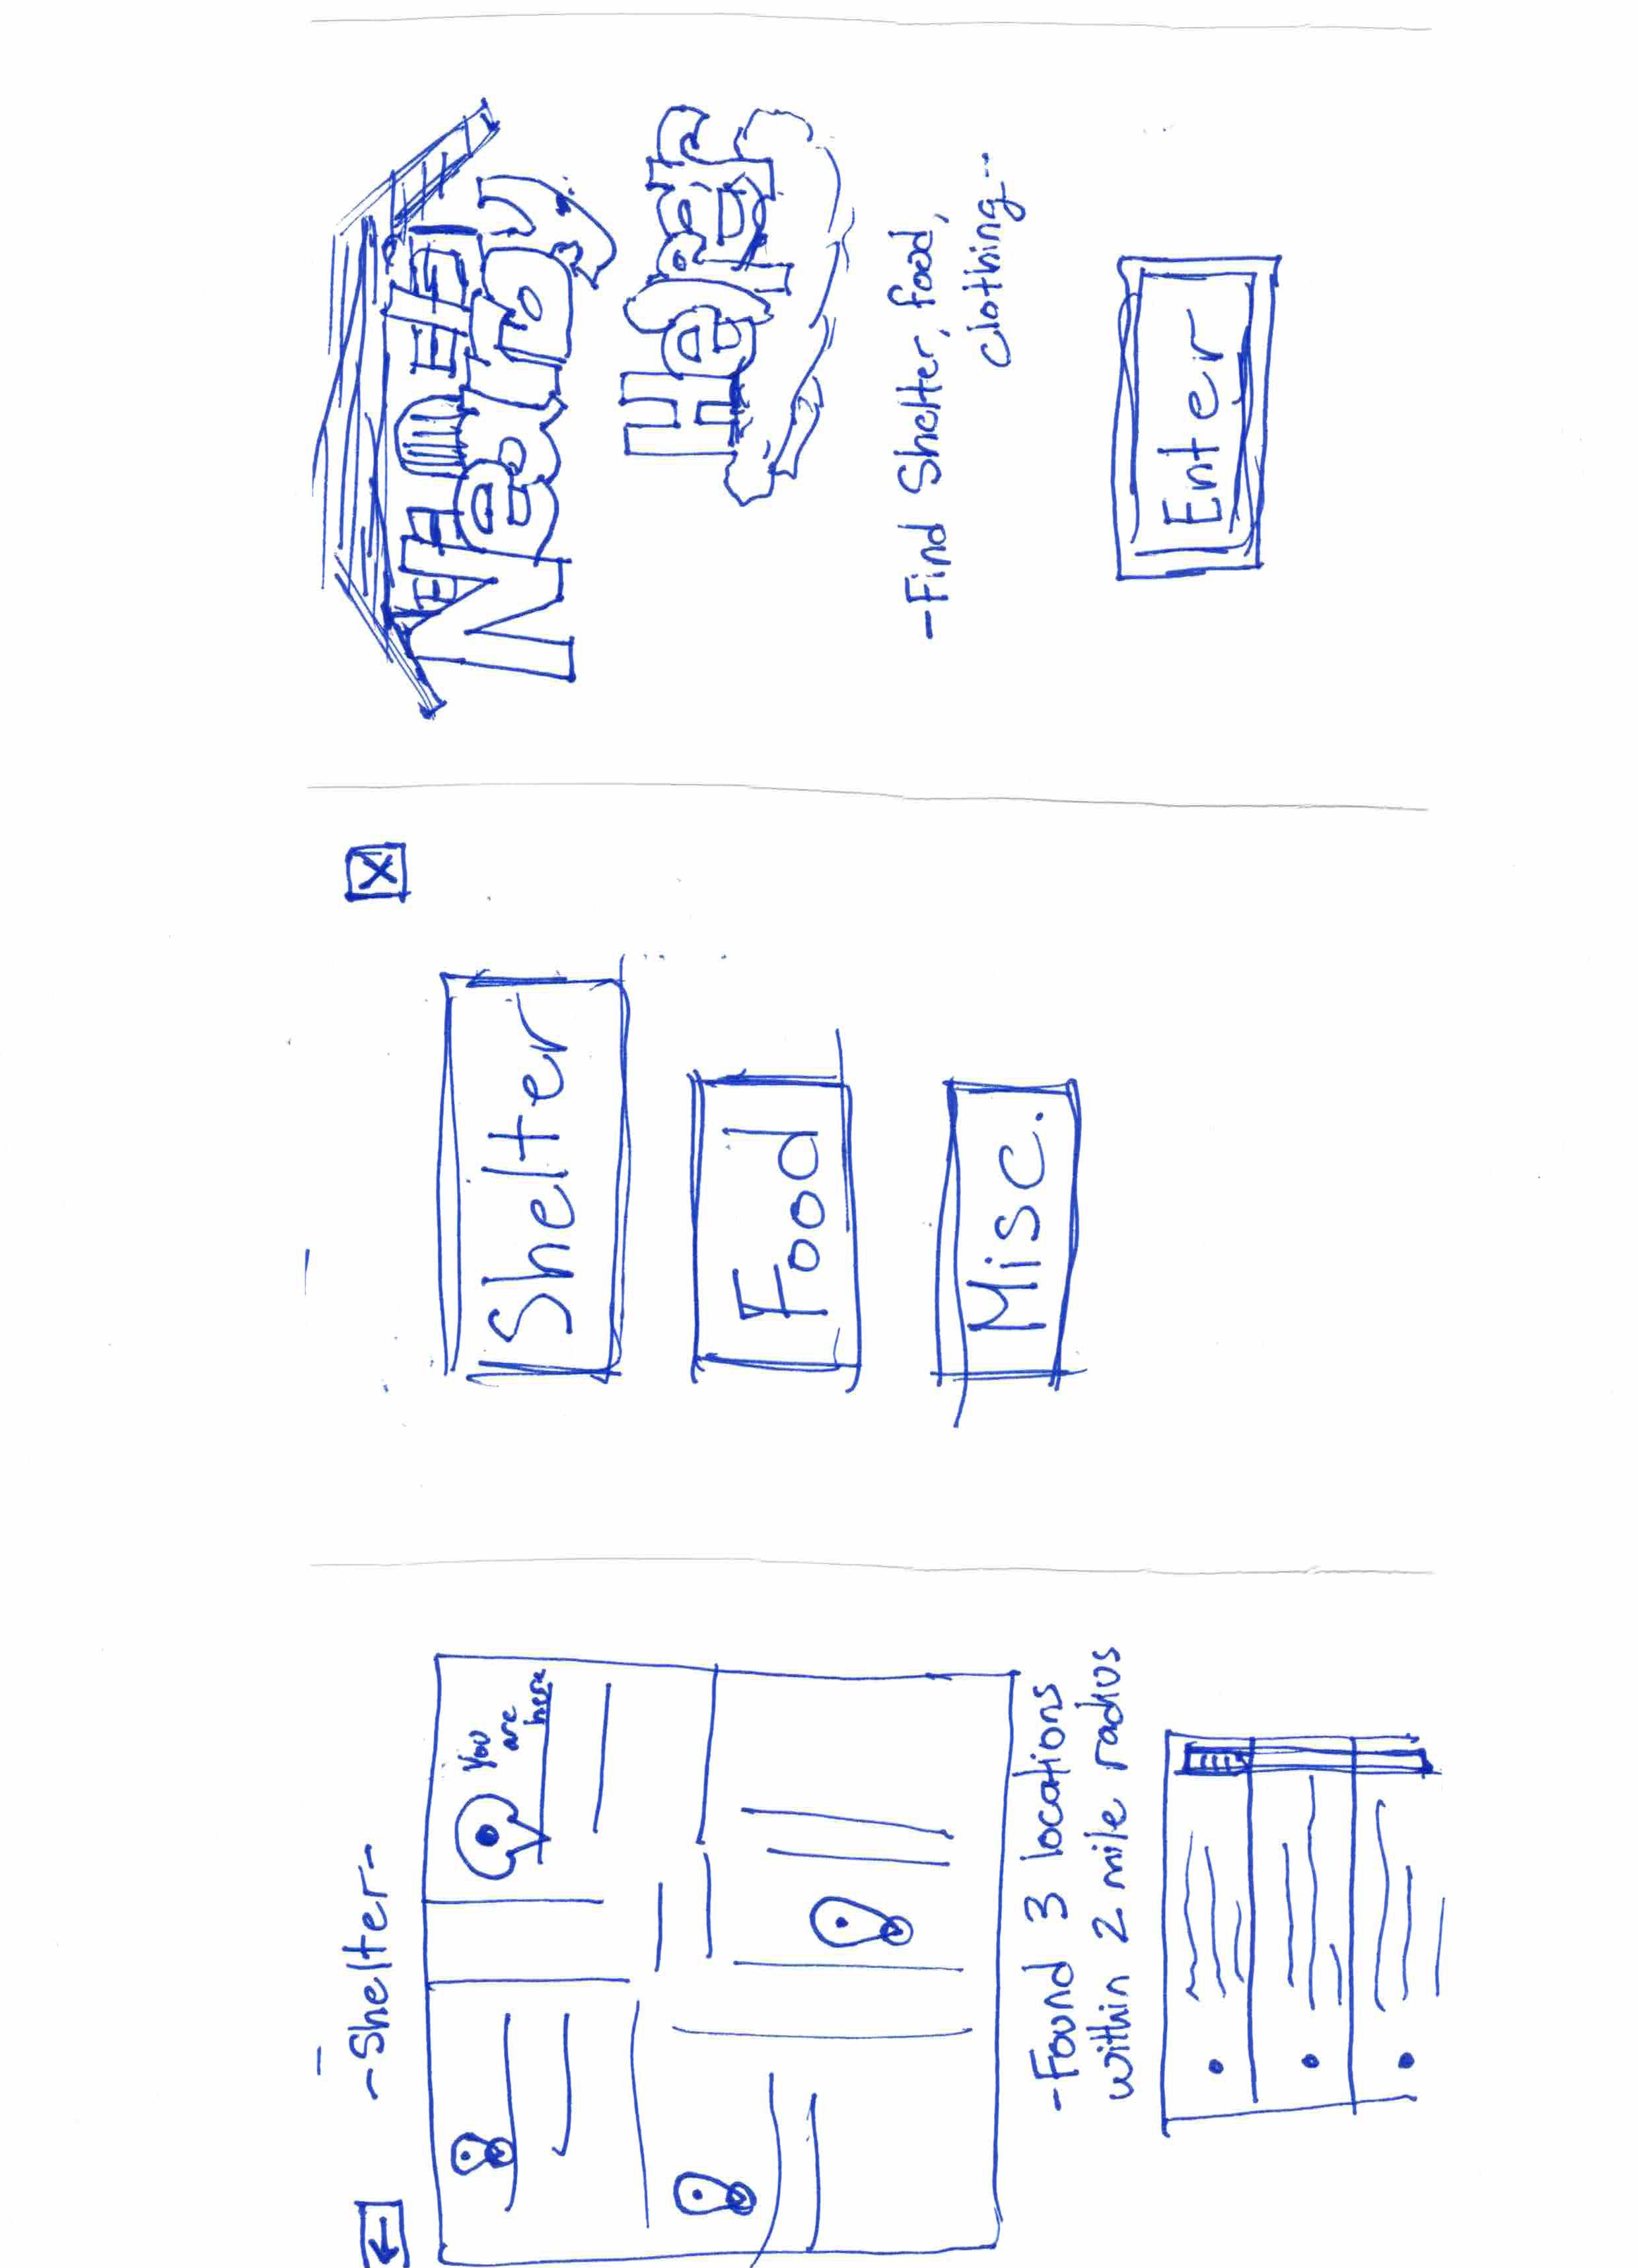 -Shelter-
You
are
here
-Found 3 locations
within 2 mile radius
X
Shelter
Food
Misc.
Nearby
Helper
-Find Shelter, food,
clothing--
Enter